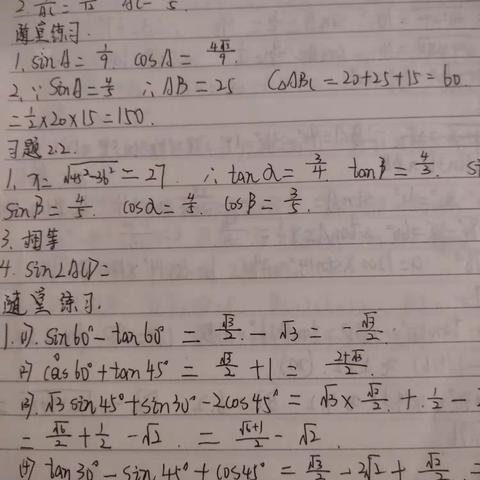 随堂练习.
1. sinA = 1/9. cosA = 4√5/9.
2. ∵ SinA = 4/5 ∴ AB = 25 C△ABC = 20+25+15 = 60.
= 1/2 × 20 × 15 = 150.
习题2.2.
1. x = √45²-36² = 27. ∴ tanα = 3/4. tanβ = 4/3.
sinβ = 4/5. cosα = 4/5. cosβ = 3/5.
3. 相等
4. sin∠ACD =
随堂练习.
1. (1). sin60° - tan60° = √3/2 - √3 = -√3/2.
(2) cos60° + tan45° = √3/2 + 1 = 2+√3/2.
(3). √3 sin45° + sin30° - 2cos45° = √3 × √2/2 + 1/2 -
= √6/2 + 1/2 - √2. = √6+1/2 - √2.
(4) tan30° - sin45° + cos45° = √3/2 - 2√2 + √2/2 =